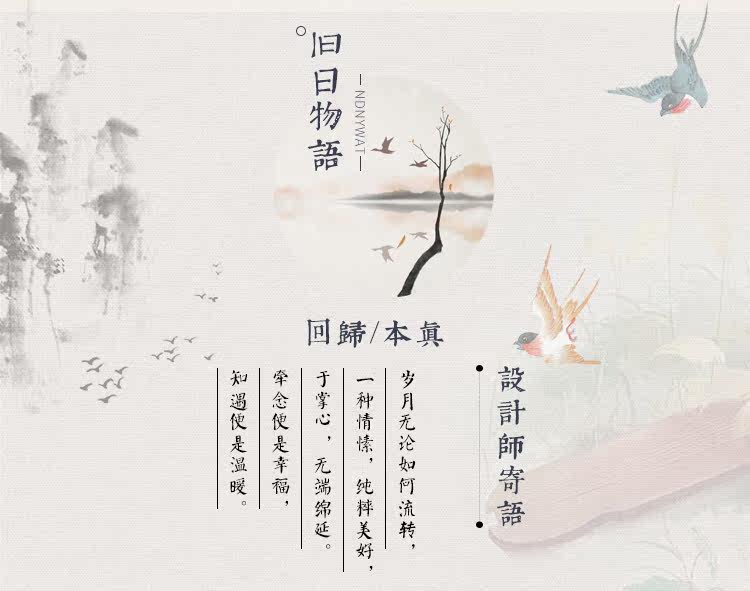 旧日物語
NDNYWAT
回歸/本眞
設計師寄語
岁月无论如何流转，
一种情愫，纯粹美好，
于掌心，无端绵延。
牵念便是幸福，
知遇便是温暖。